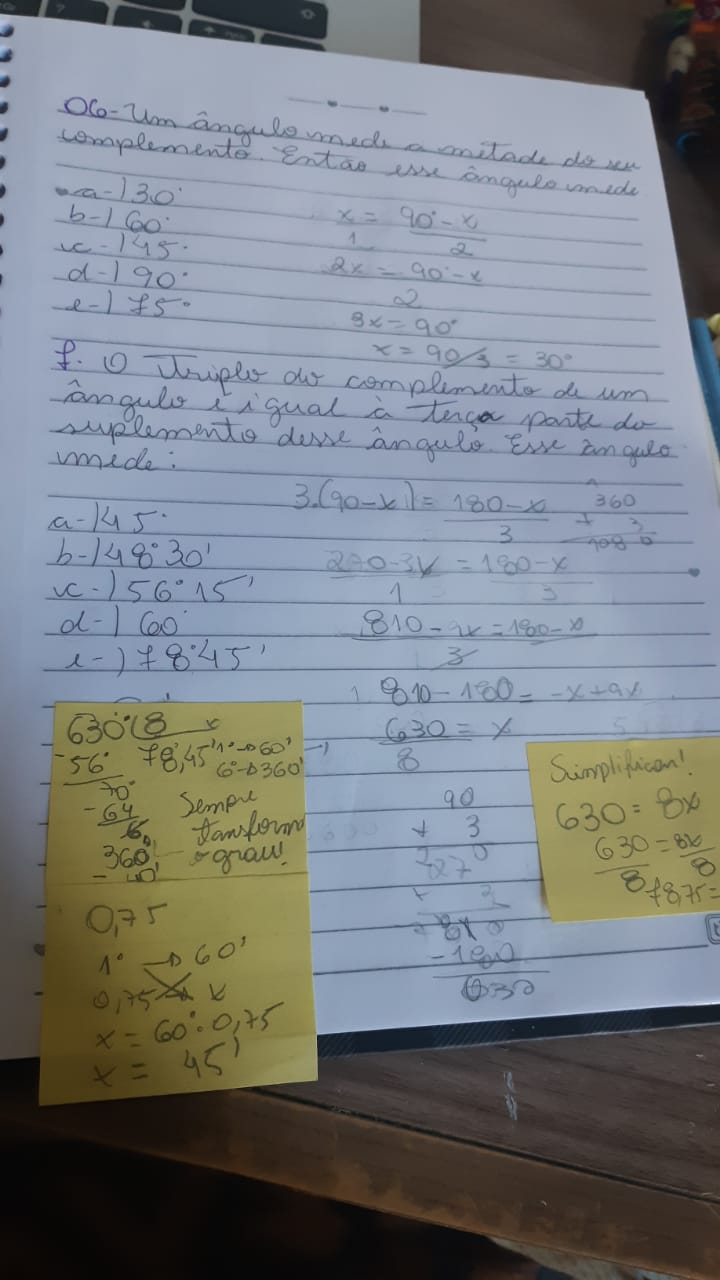 06-Um ângulo mede a metade do seu
complemento. Então esse ângulo mede
a-) 30°
b-) 60°
c-) 45°
d-) 90°
e-) 75°
x = 90°-x
1 2
2x = 90°-x
2
3x = 90°
x = 90/3 = 30°
7. O Triplo do complemento de um
ângulo é igual à terça parte do
suplemento desse ângulo. Esse ângulo
mede:
a-) 45°
b-) 48°30'
c-) 56°15'
d-) 60°
e-) 78°45'
3.(90-x) = 180-x
3
360
3
270-3x = 180-x
1 3
810-9x = 180-x
3
810-180 = -x+9x
630 = x
8
90
+ 3
270
3
810
-180
630
630° 8
-56° 78°,45' 1°→60'
70° 6°→360'
-64 Sempre
6° transformo
360' o grau!
0,75
1° → 60'
0,75 x
x = 60°.0,75
x = 45'
Simplificar!
630 = 8x
630 = 8x
8 8
78,75 =